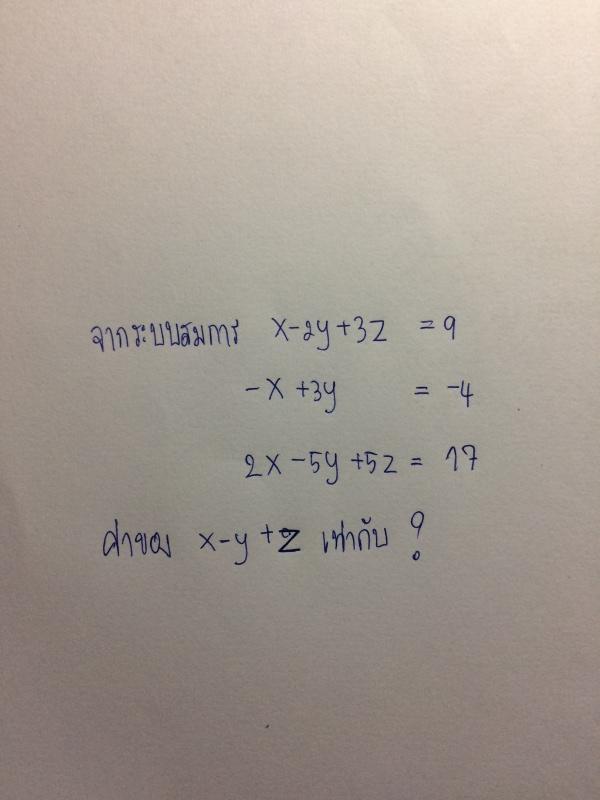 จากระบบสมการ x-2y+3z = 9
-x +3y = -4
2x -5y +5z = 17
ค่าของ x-y+z เท่ากับ ?